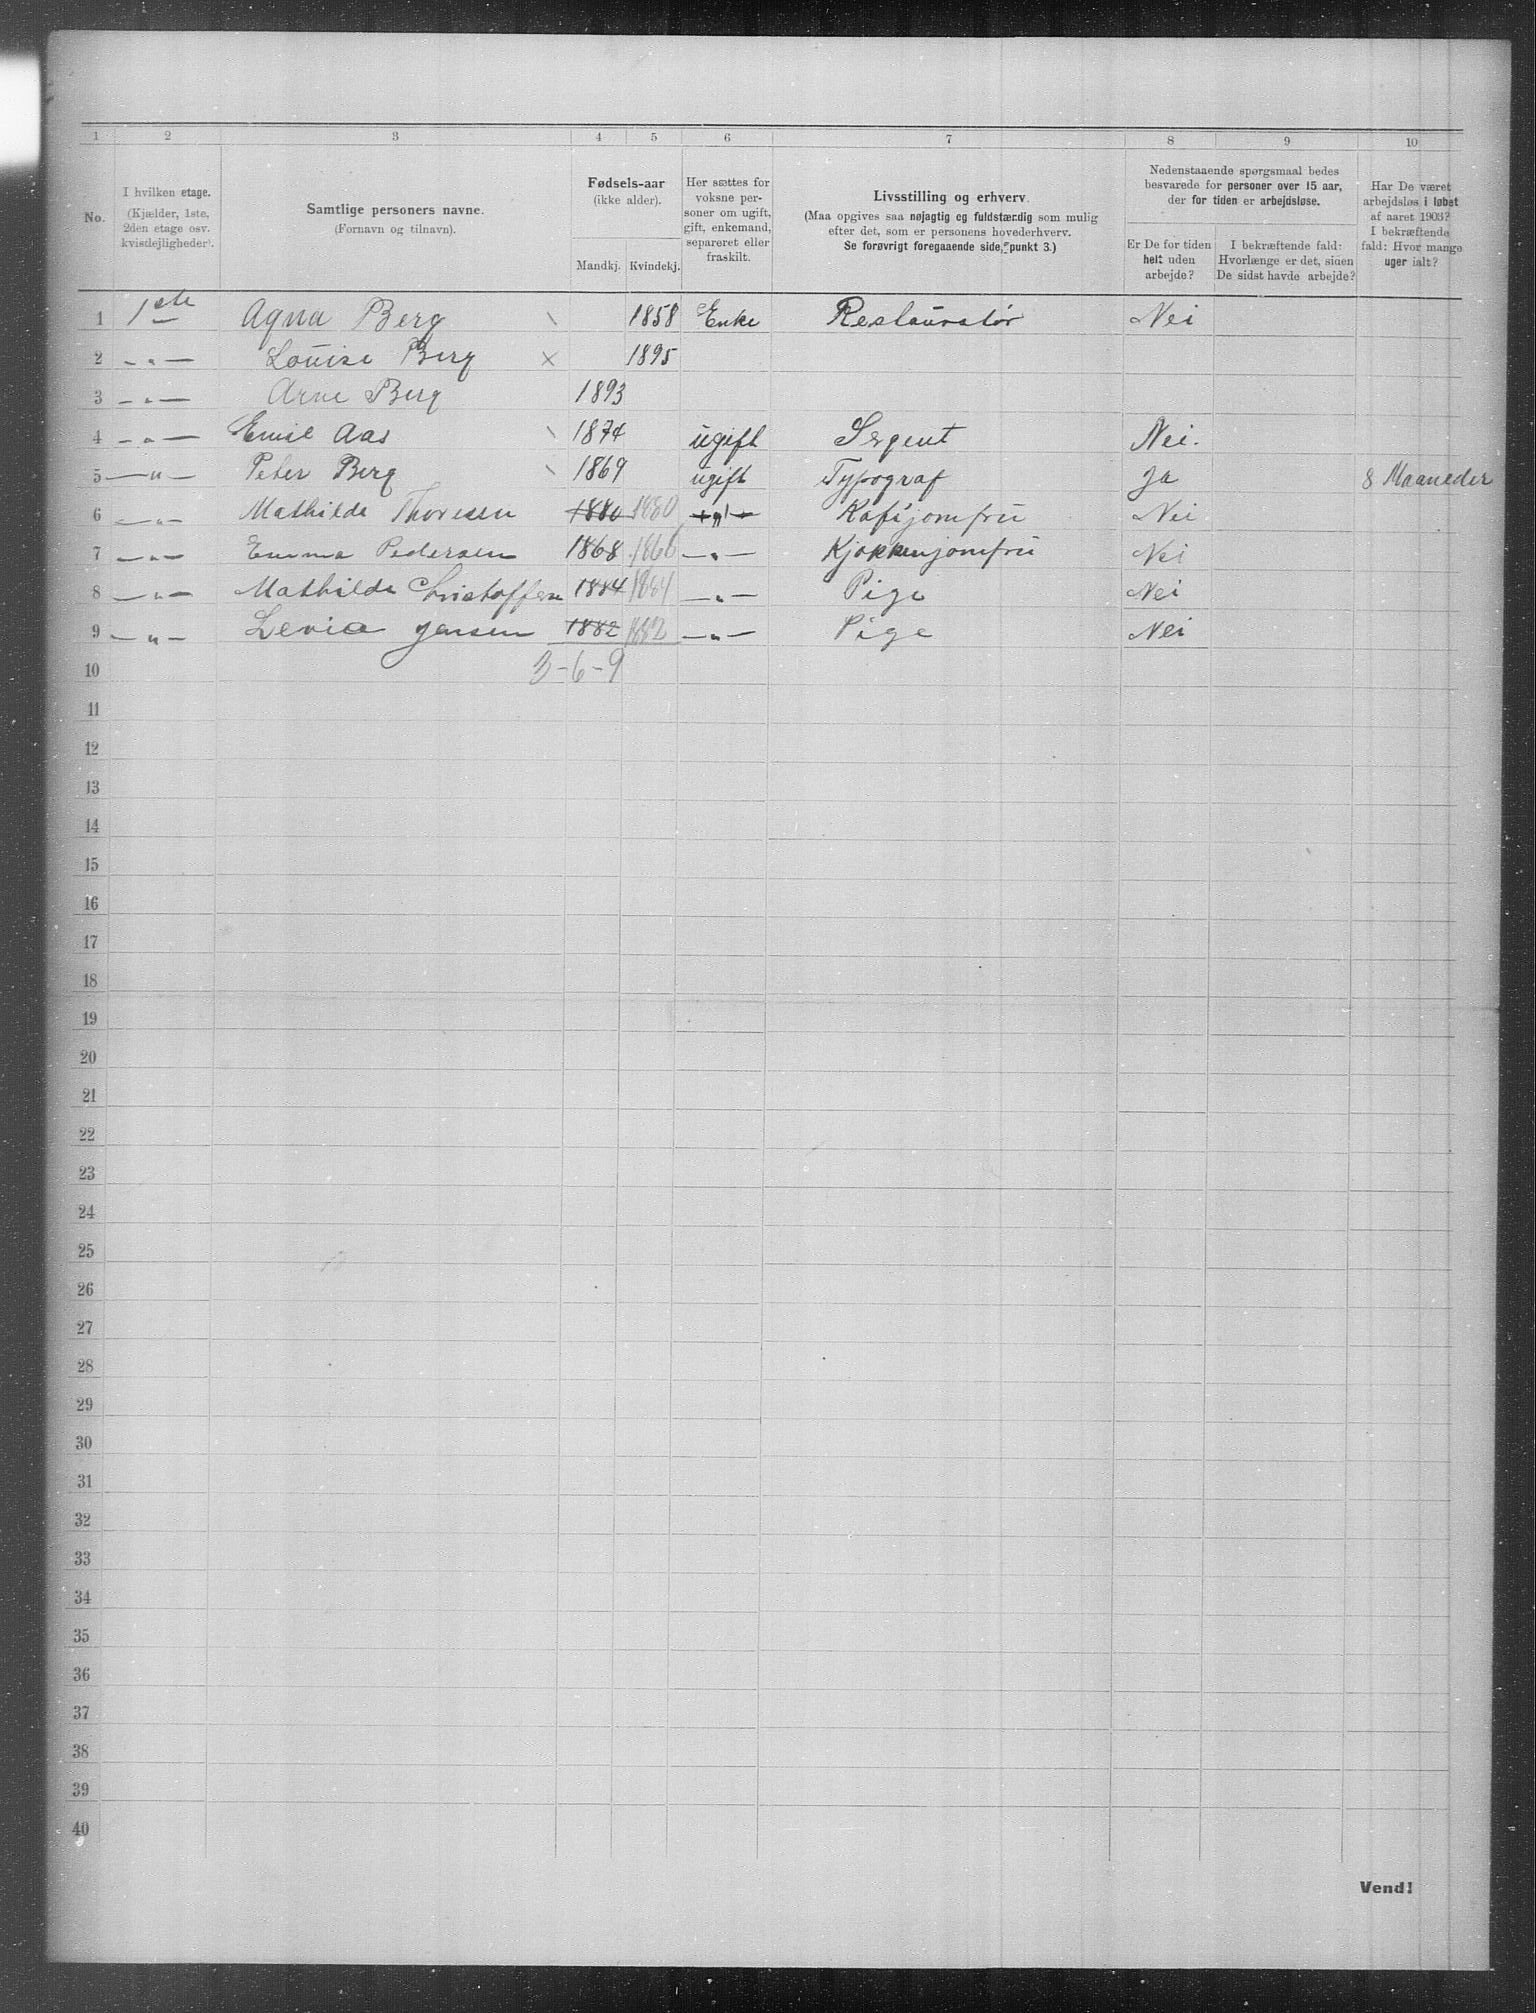 1 2 3 4 5 6 7 8 9 10
No.
I hvilken etage.
(Kjælder, 1ste,
2den etage osv.
kvistlejligheder).
Samtlige personers navne.
(Fornavn og tilnavn).
Fødsels-aar
(ikke alder).
Mandkj. Kvindekj.
Her sættes for
voksne per-
soner om ugift,
gift, enkemand,
separeret eller
fraskilt.
Livsstilling og erhverv.
(Maa opgives saa nøjagtig og fuldstærdig som mulig
efter det, som er personens hovederhverv.
Se forøvrigt foregaaende side, punkt 3.)
Nedenstaaende spørgsmaal bedes
besvarede for personer over 15 aar,
der for tiden er arbejdsløse.
Er De for tiden
helt uden
arbejde?
I bekræftende fald:
Hvorlænge er det, siden
De sidst havde arbejde?
Har De været
arbejdsløs i løbet
af aaret 1903?
I bekræftende
fald: Hvor mange
uger ialt?
1 1ste Agna Berg \ 1858 Enke Restauratør Nei
2 — „ — Louise Berg × 1895
3 — „ — Arne Berg 1893
4 — „ — Emil Aas \ 1874 ugift Sergent Nei.
5 — „ — Peter Berg \ 1869 ugift Typograf Ja 8 Maaneder
6 — „ — Mathilde Thoresen 1880 1880 — „ — Kafijomfru Nei
7 — „ — Emma Pedersen 1868 1868 — „ — Kjøkkenjomfru Nei
8 — „ — Mathilde Christoffersen 1884 1884 — „ — Pige Nei
9 — „ — Jensen 1882 1882 — „ — Pige Nei
10 3-6-9
11
12
13
14
15
16
17
18
19
20
21
22
23
24
25
26
27
28
29
30
31
32
33
34
35
36
37
38
39
40
Vend!